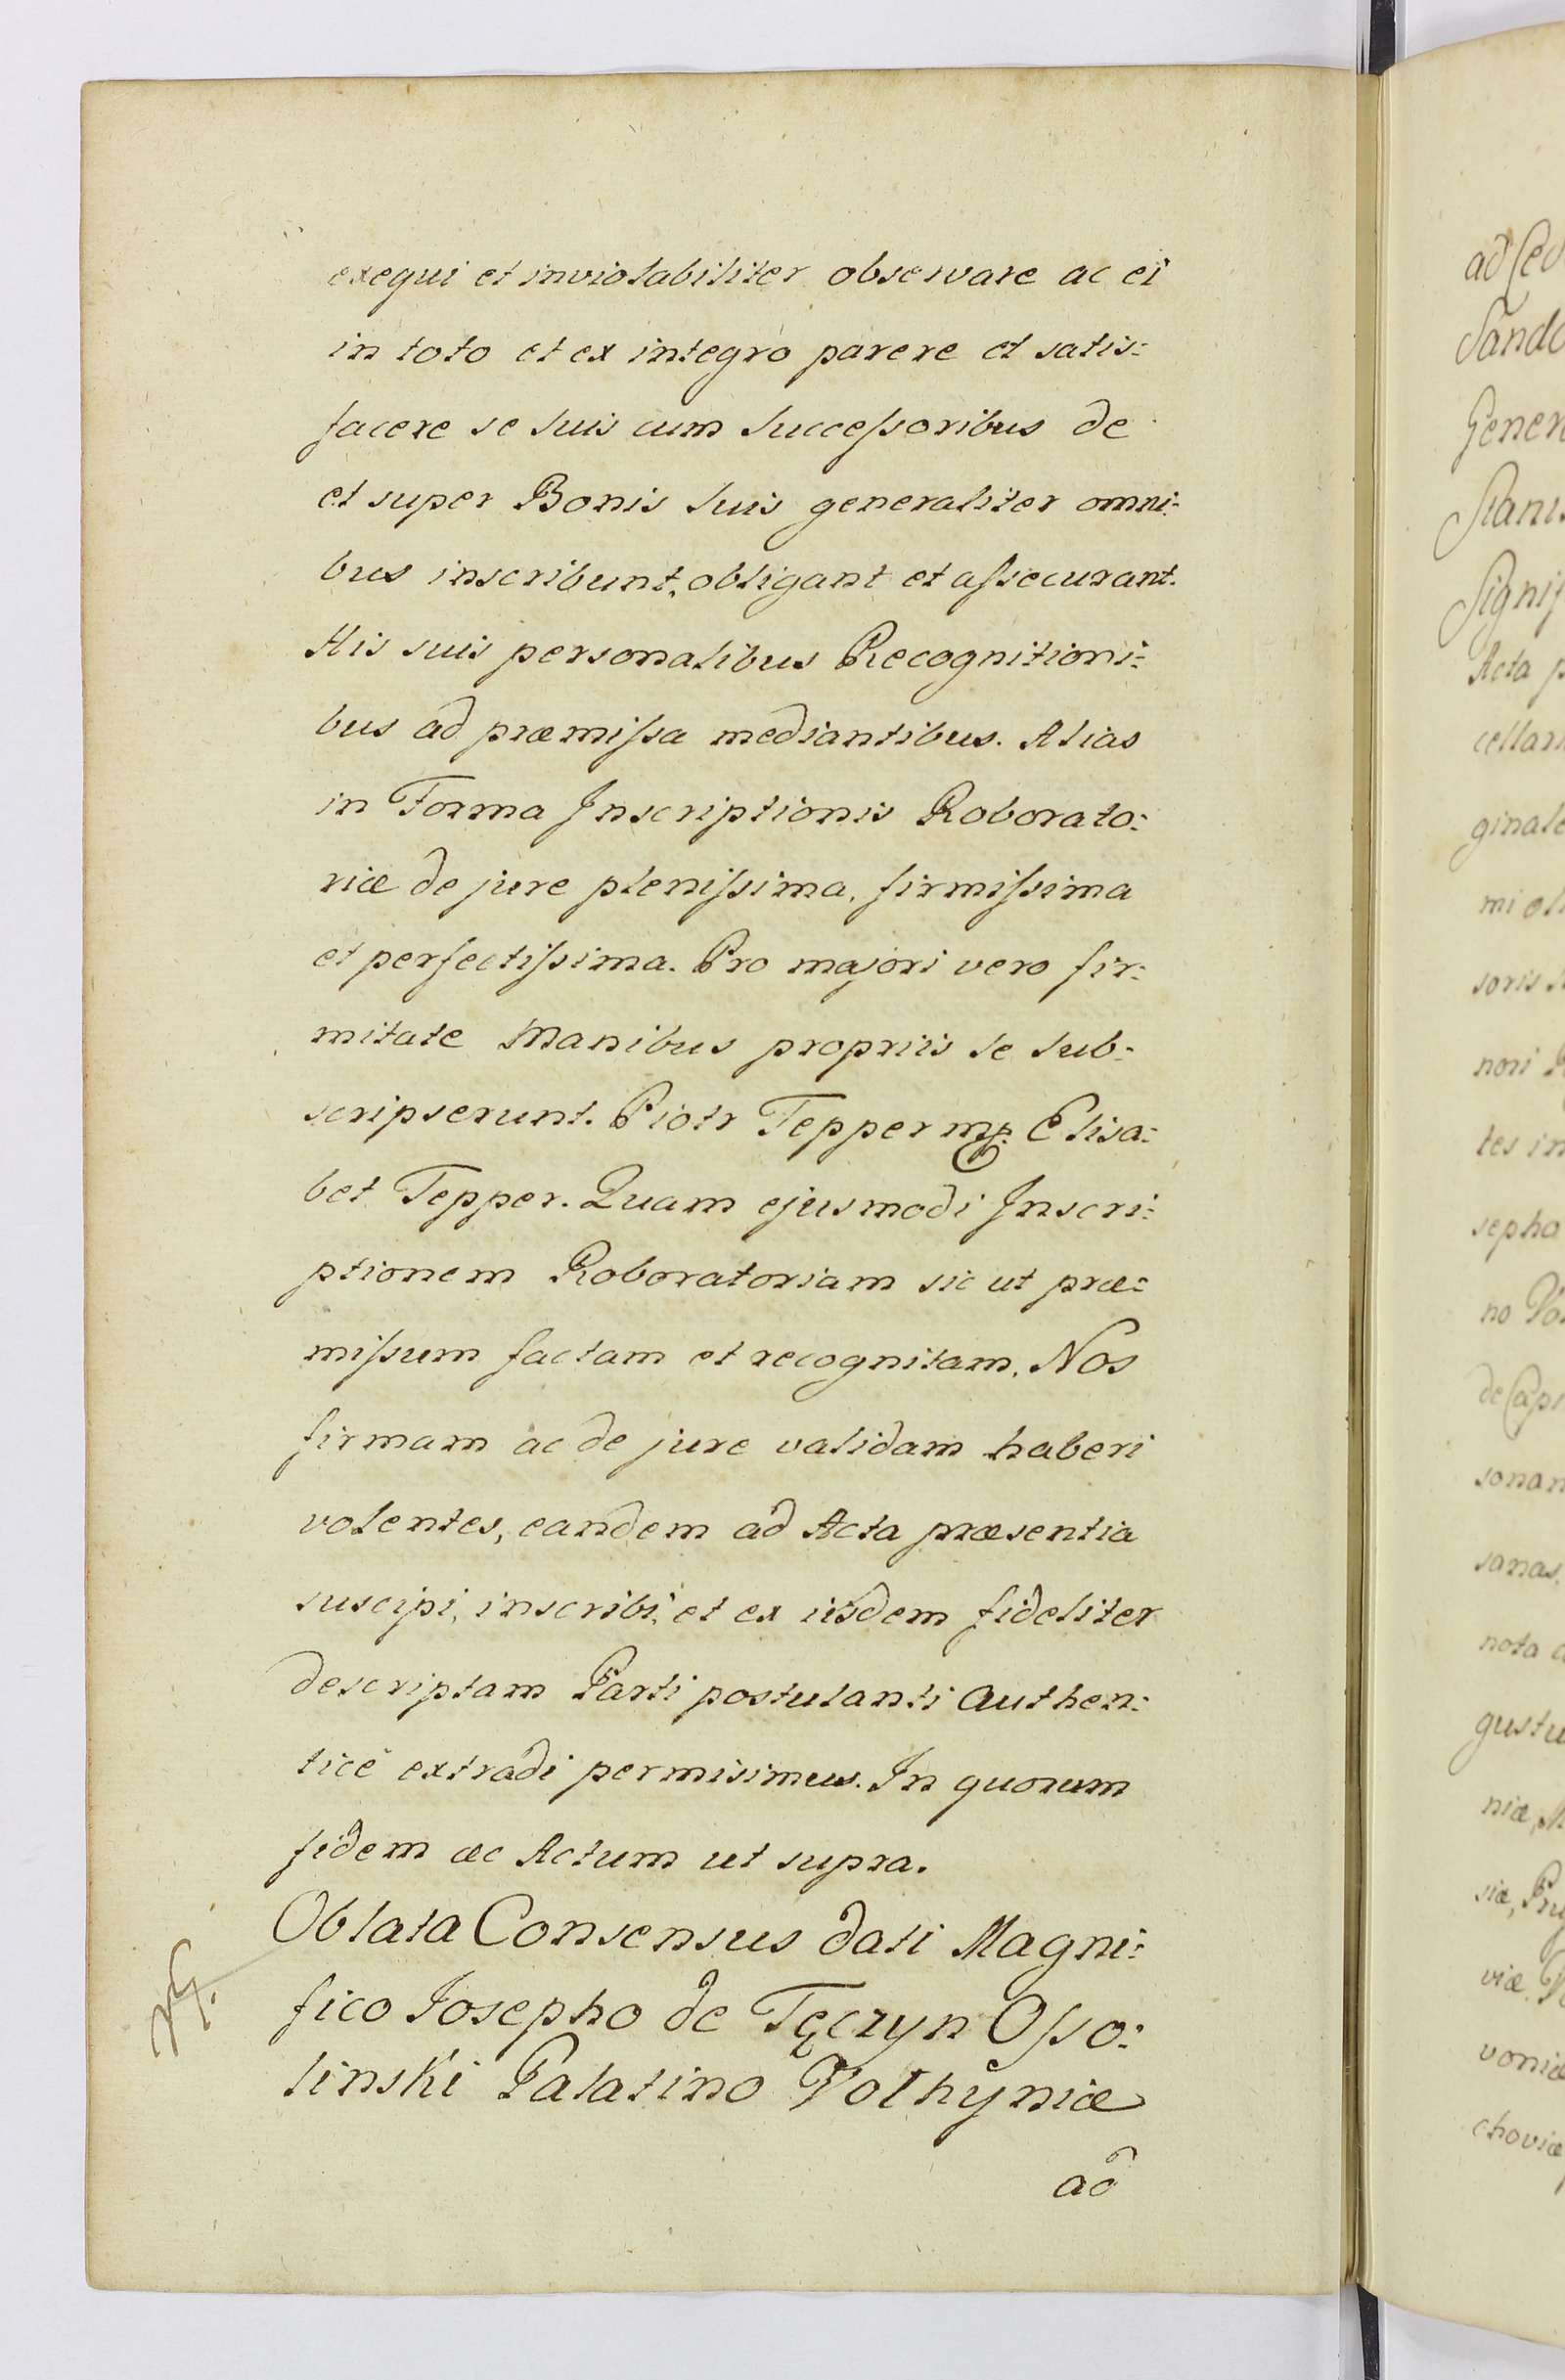 exequi et inviolabiliter observare ac ei
in toto et ex integro parere et satis:
facere se suis cum Successoribus de
et super Bonis suis generaliter omni:
bus inscribunt, obligant et assecurant.
His suis personalibus Recognitioni:
bus ad præmissa mediantibus. Alias
in Forma Inscriptionis Roborato:
riæ de jure plenissima, firmissima
et perfectissima. Pro majori vero fir:
mitate Manibus propriis se sub:
scripserunt. Piotr Tepper mp. Elisa:
bet Tepper. Quam ejusmodi Inscri:
ptionem Roboratoriam sic ut præ:
missum factam et recognitam, Nos
firmam ac de jure validam haberi
volentes, eandem ad Acta præsentia
suscipi, inscribi, et ex iisdem fideliter
descriptam Parti postulanti Authen:
ticè extradi permisimus. In quorum
fidem ac Actum ut supra.
Oblata Consensus dati Magni:
fico Josepho de Tęczyn Osso:
linski Palatino Volhÿniæ
ad
ad
Gener
Acta
cellari
ginale
mi
soris
nori
tes in
sepho
no
de Capi
sonan
sanas,
nota
gustu
niæ, M
siæ, Pru
viæ,
voniæ
choviæ